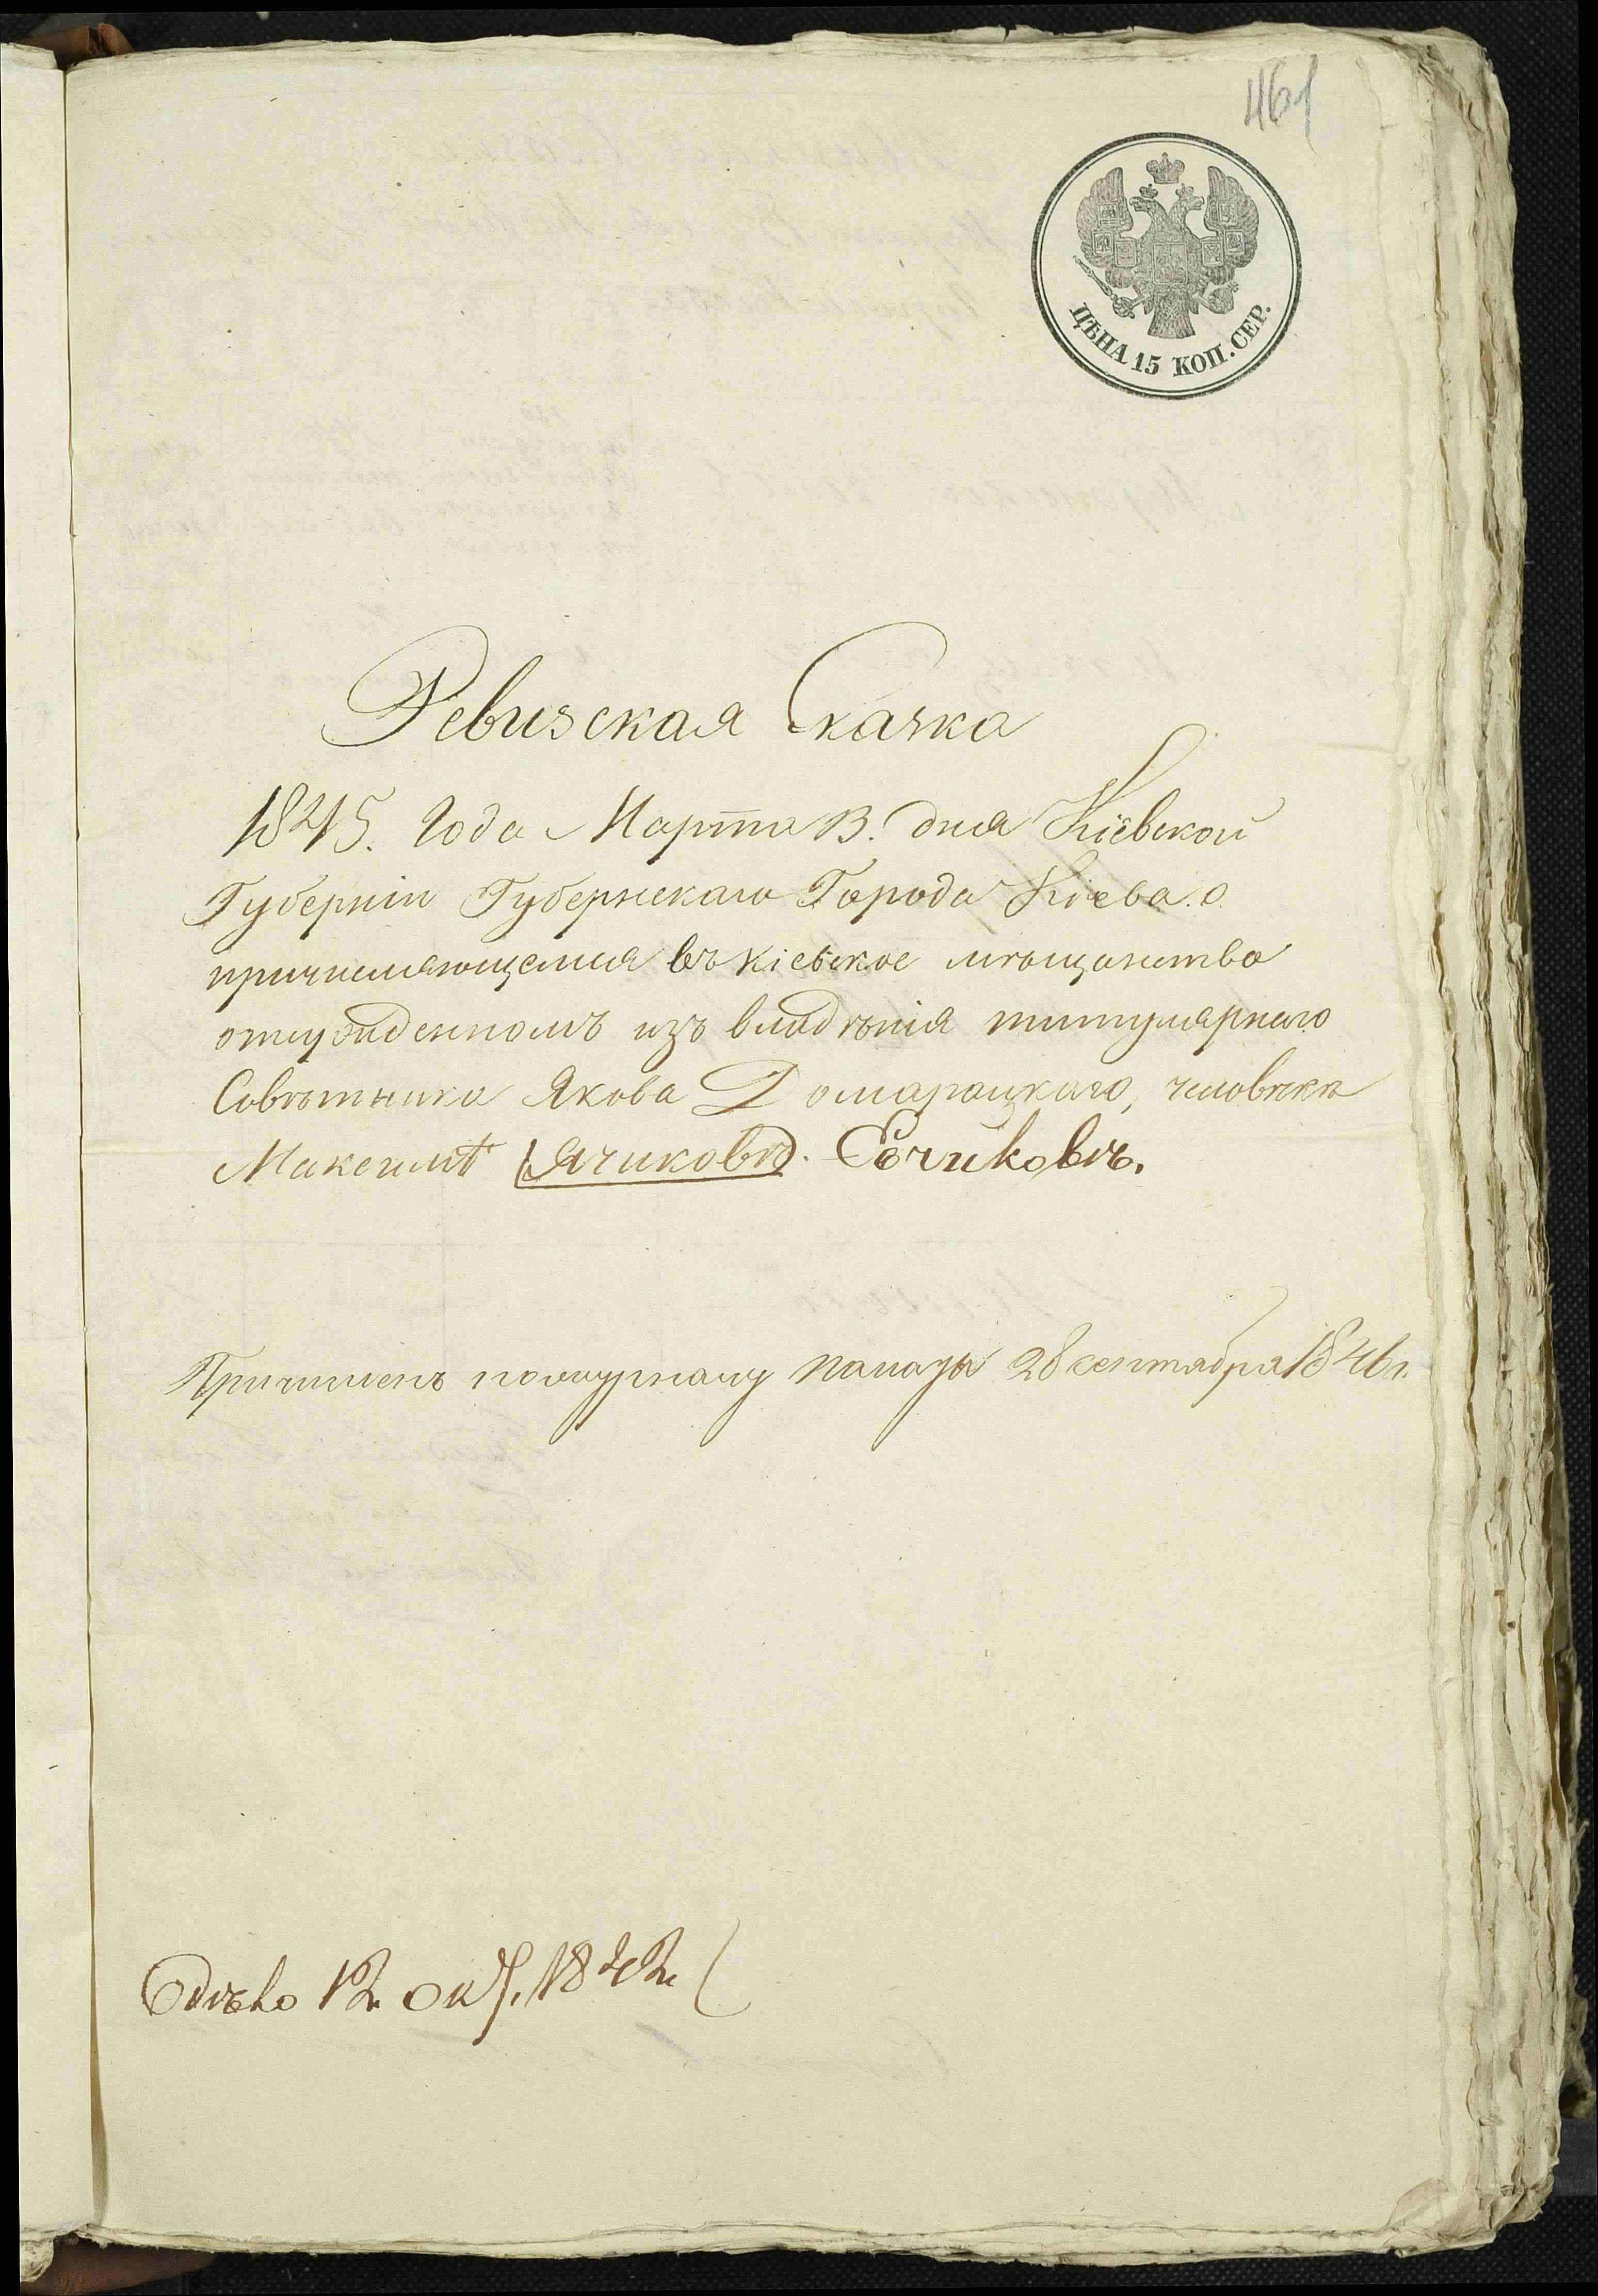 461
ЦѢНА 15 КОП. СЕР.
Ревизская Сказка
1845. Года Марта 13. дня Кіевской
Губерніи Губернскаго Города Кіева. о
причисляющемся въ кіевское мѣщанство
отсужденномъ изъ владѣнія титулярнаго
Совѣтника Якова Домарацкаго, человѣкѣ
Максимѣ Ячиковѣ. Ечиковъ.
Причисленъ по журналу палаты 28 сентября 1846 г.
12 окт. 184